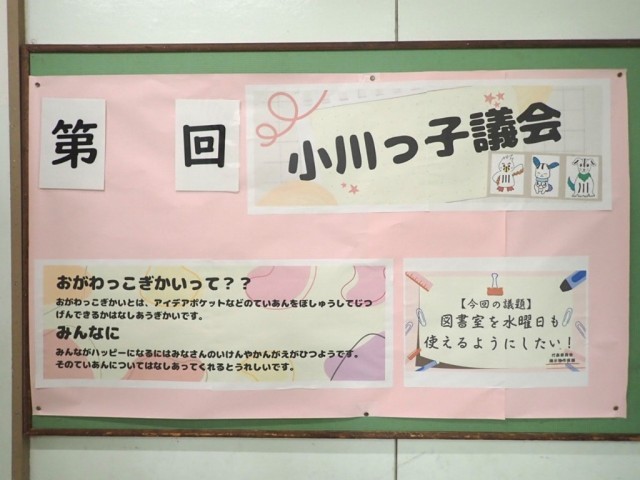 第 回
小川っ子議会
おがわっこぎかいって？？
おがわっこぎかいとは、アイデアポケットなどのていあんをぼしゅうしてじつ
げんできるかはなしあうぎかいです。
みんなに
みんながハッピーになるにはみなさんのいけんやかんがえがひつようです。
そのていあんについてはなしあってくれるとうれしいです。
【今回の議題】
図書室を水曜日も
使えるようにしたい！